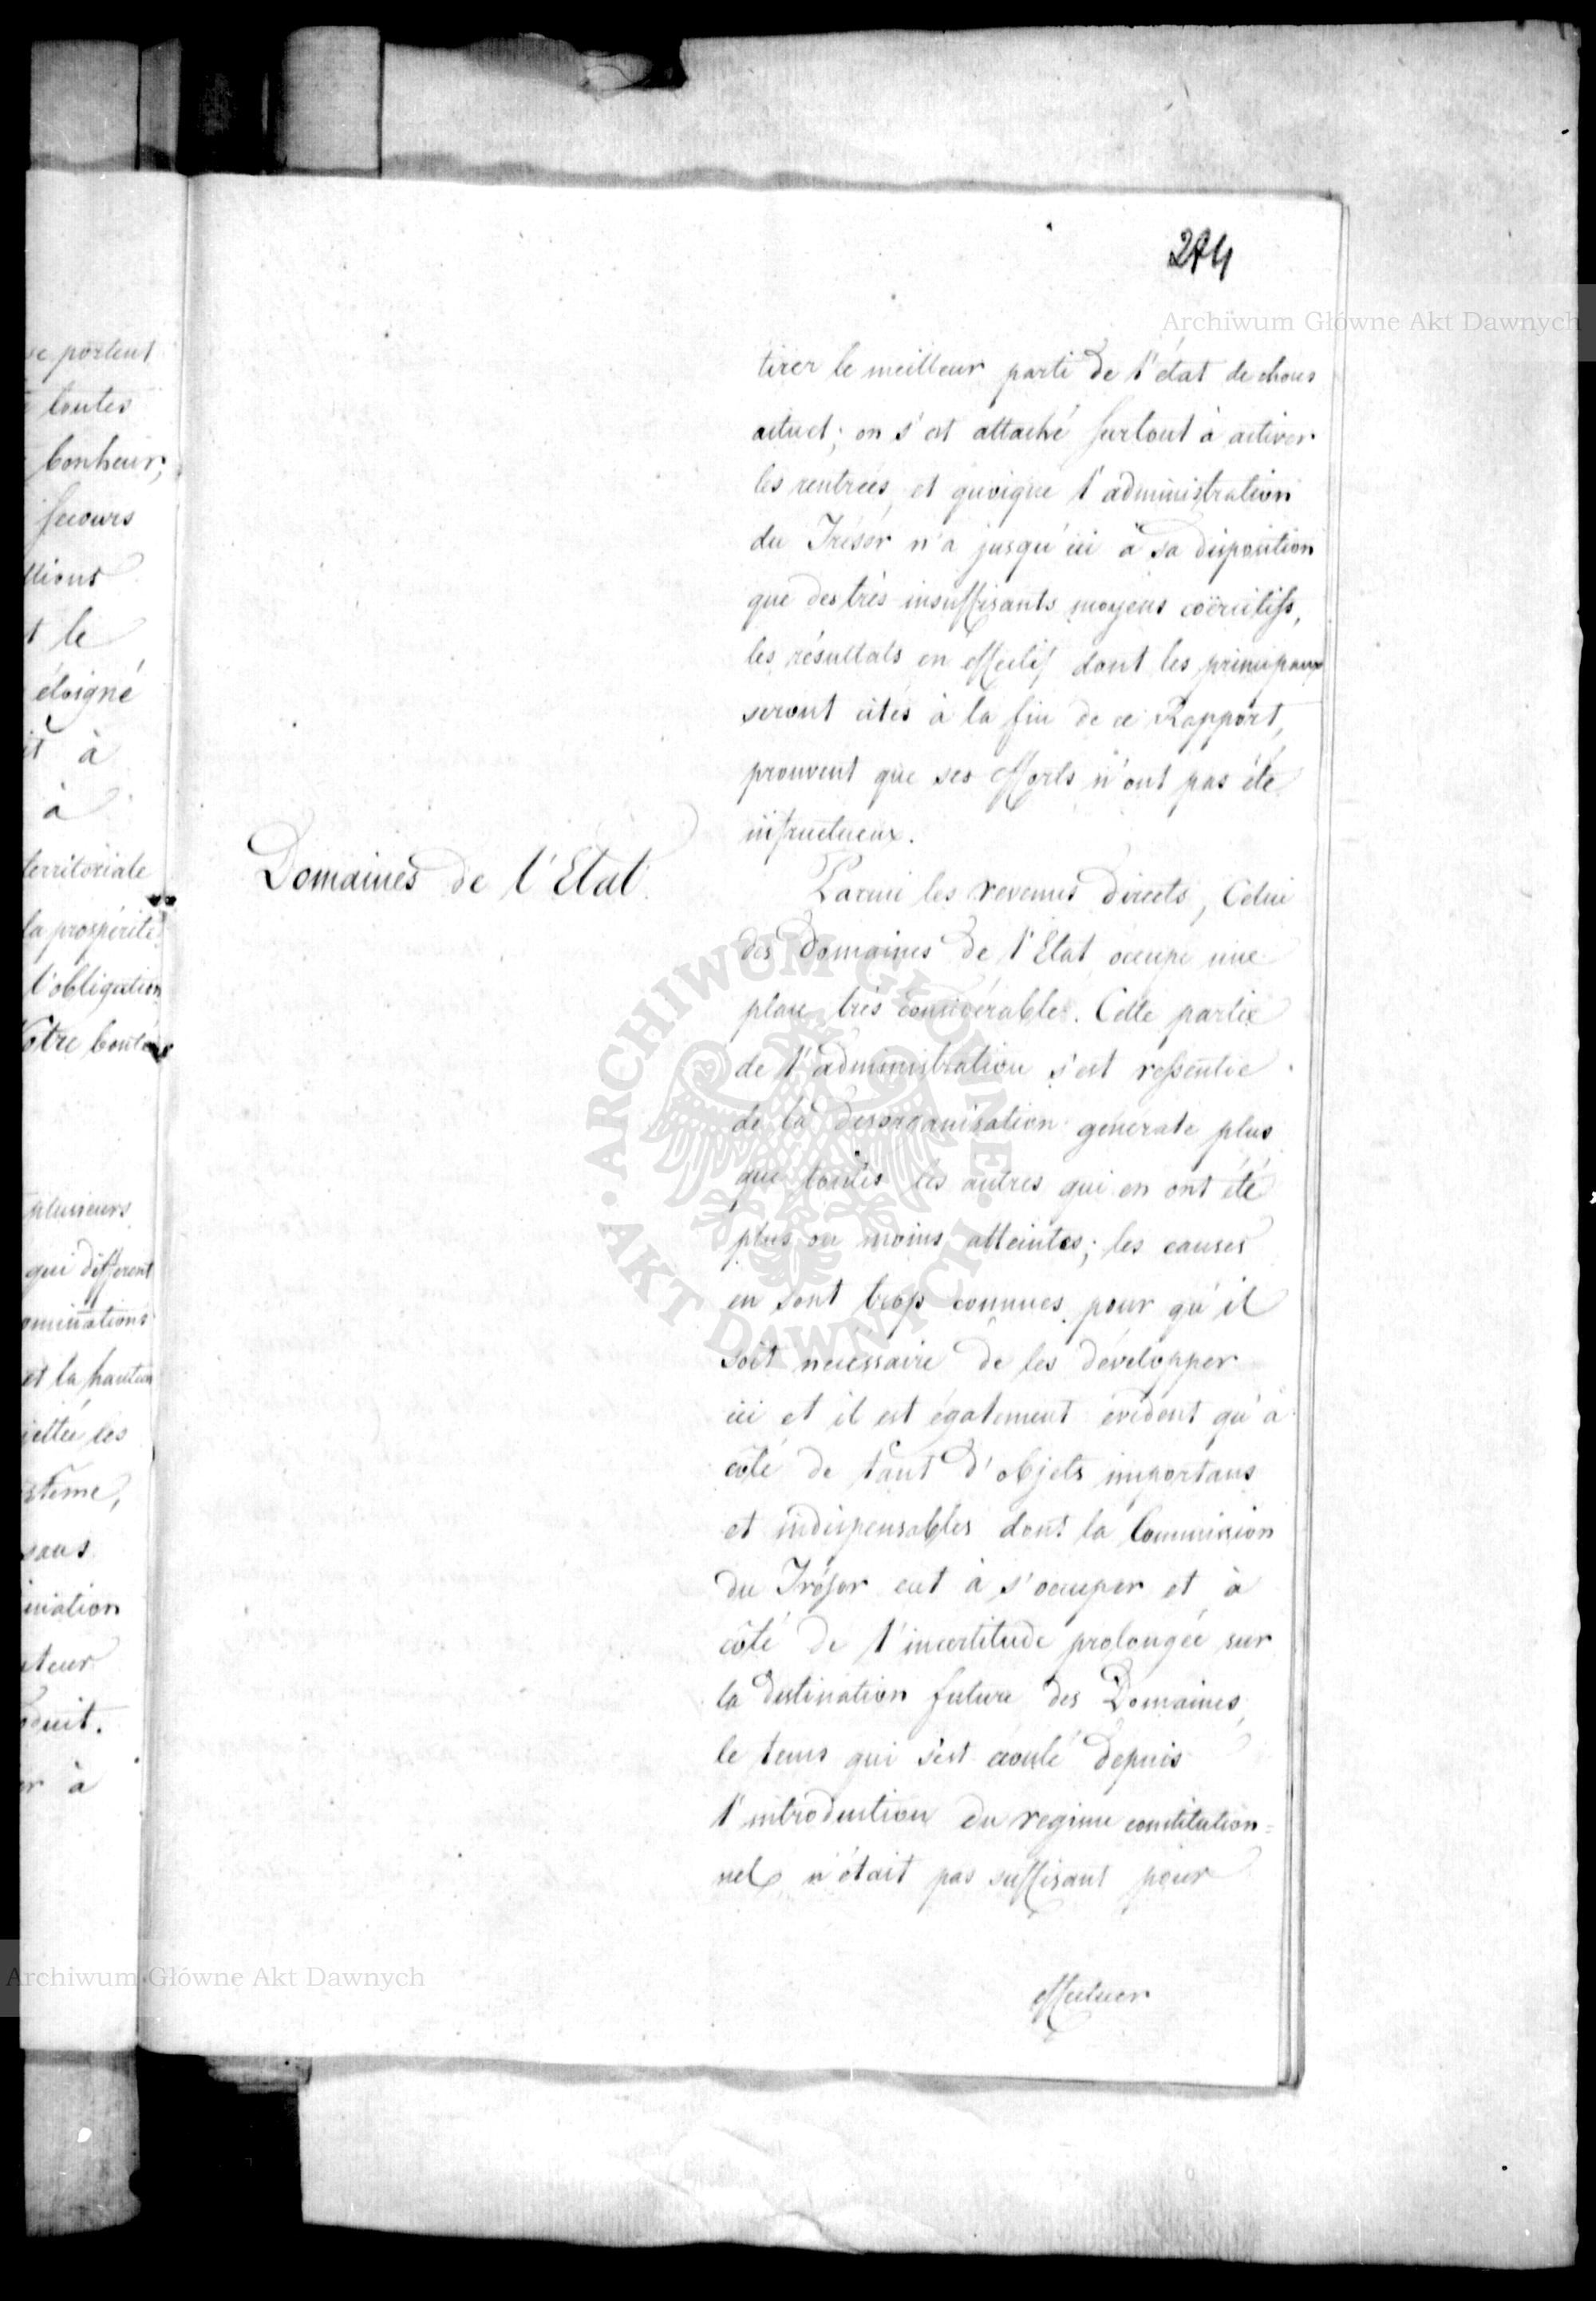 274
Archiwum Główne Akt Dawnych
tirer le meilleur parti de l'état de choses
actuel; on s'est attaché surtout à activer
les rentrées, et quoique l'administration
du Trésor n'a jusqu'ici à sa disposition
que des très insuffisants moyens coërcitifs,
les résultats en effectif dont les principaux
seront cités à la fin de ce Rapport,
prouvent que ses efforts n'ont pas été
infructueux.
Domaines de l'Etat
Parmi les revenus directs, Celui
des Domaines de l'Etat occupe une
place très considérable. Cette partie
de l'administration s'est ressentie
de la desorganisation générale plus
que toutes les autres qui en ont été
plus ou moins atteintes; les causes
en sont trop connues pour qu'il
soit necessaire de les développer
ici et il est également évident qu'à
côté de tant d'objets importans
et indispensables dont la Commission
du Trésor eut à s'occuper et à
côté de l'incertitude prolongée sur
la destination future des Domaines,
le tems qui s'est écoulé depuis
l'introduction du regime constitution=
nel n'était pas suffisant pour
effectuer
se portent
toutes
bonheur,
secours
le
éloigné
à
à
territoriale
la prospérité
l'obligation
Votre bonté
plusieurs
qui different
et la hauteur
les
sans
à
ARCHIWUM GŁÓWNE AKT DAWNYCH
Archiwum Główne Akt Dawnych